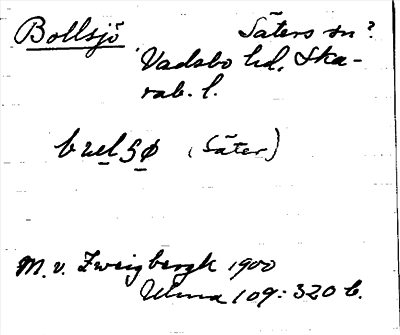 Bollsjö Säters sn?
Vadsbo hd. Ska-
rab. l.
(Säter)
M. v. Zweigbergk 1900
Ulma 109:320 b.